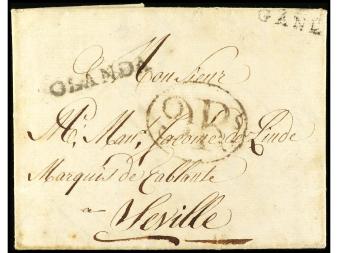 GAND
A Monsieur
OLANDA
Mr. Man. Jacome de Linde
Marquis de Tablante
a
Seville